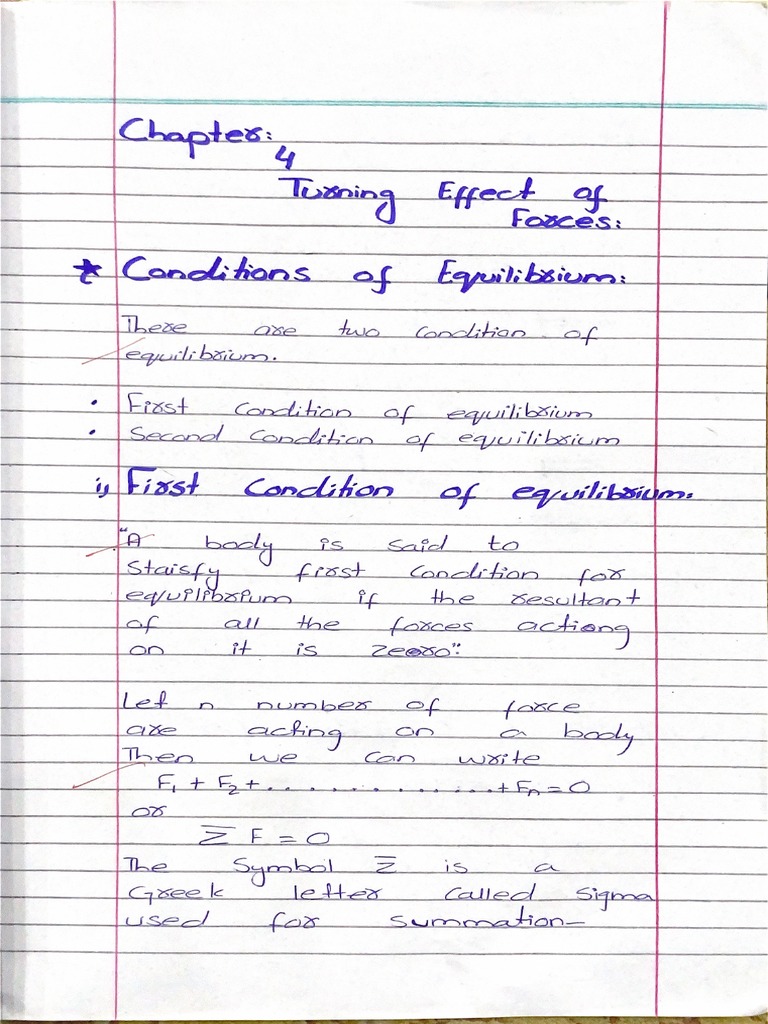 Chapter:
4
Turning Effect of
Forces:
* Conditions of Equilibrium:
There are two condition of
equilibrium.
• First condition of equilibrium
• Second condition of equilibrium
i, First Condition of equilibrium.
"A body is said to
Staisfy first condition for
equilibrium if the resultant
of all the forces actiong
on it is zeoro".
Let n number of force
are acting on a body
Then we can write
F₁ + F₂ + .............. + Fn = 0
or
Σ F = 0
The Symbol Σ is a
Greek letter called sigma
used for summation-